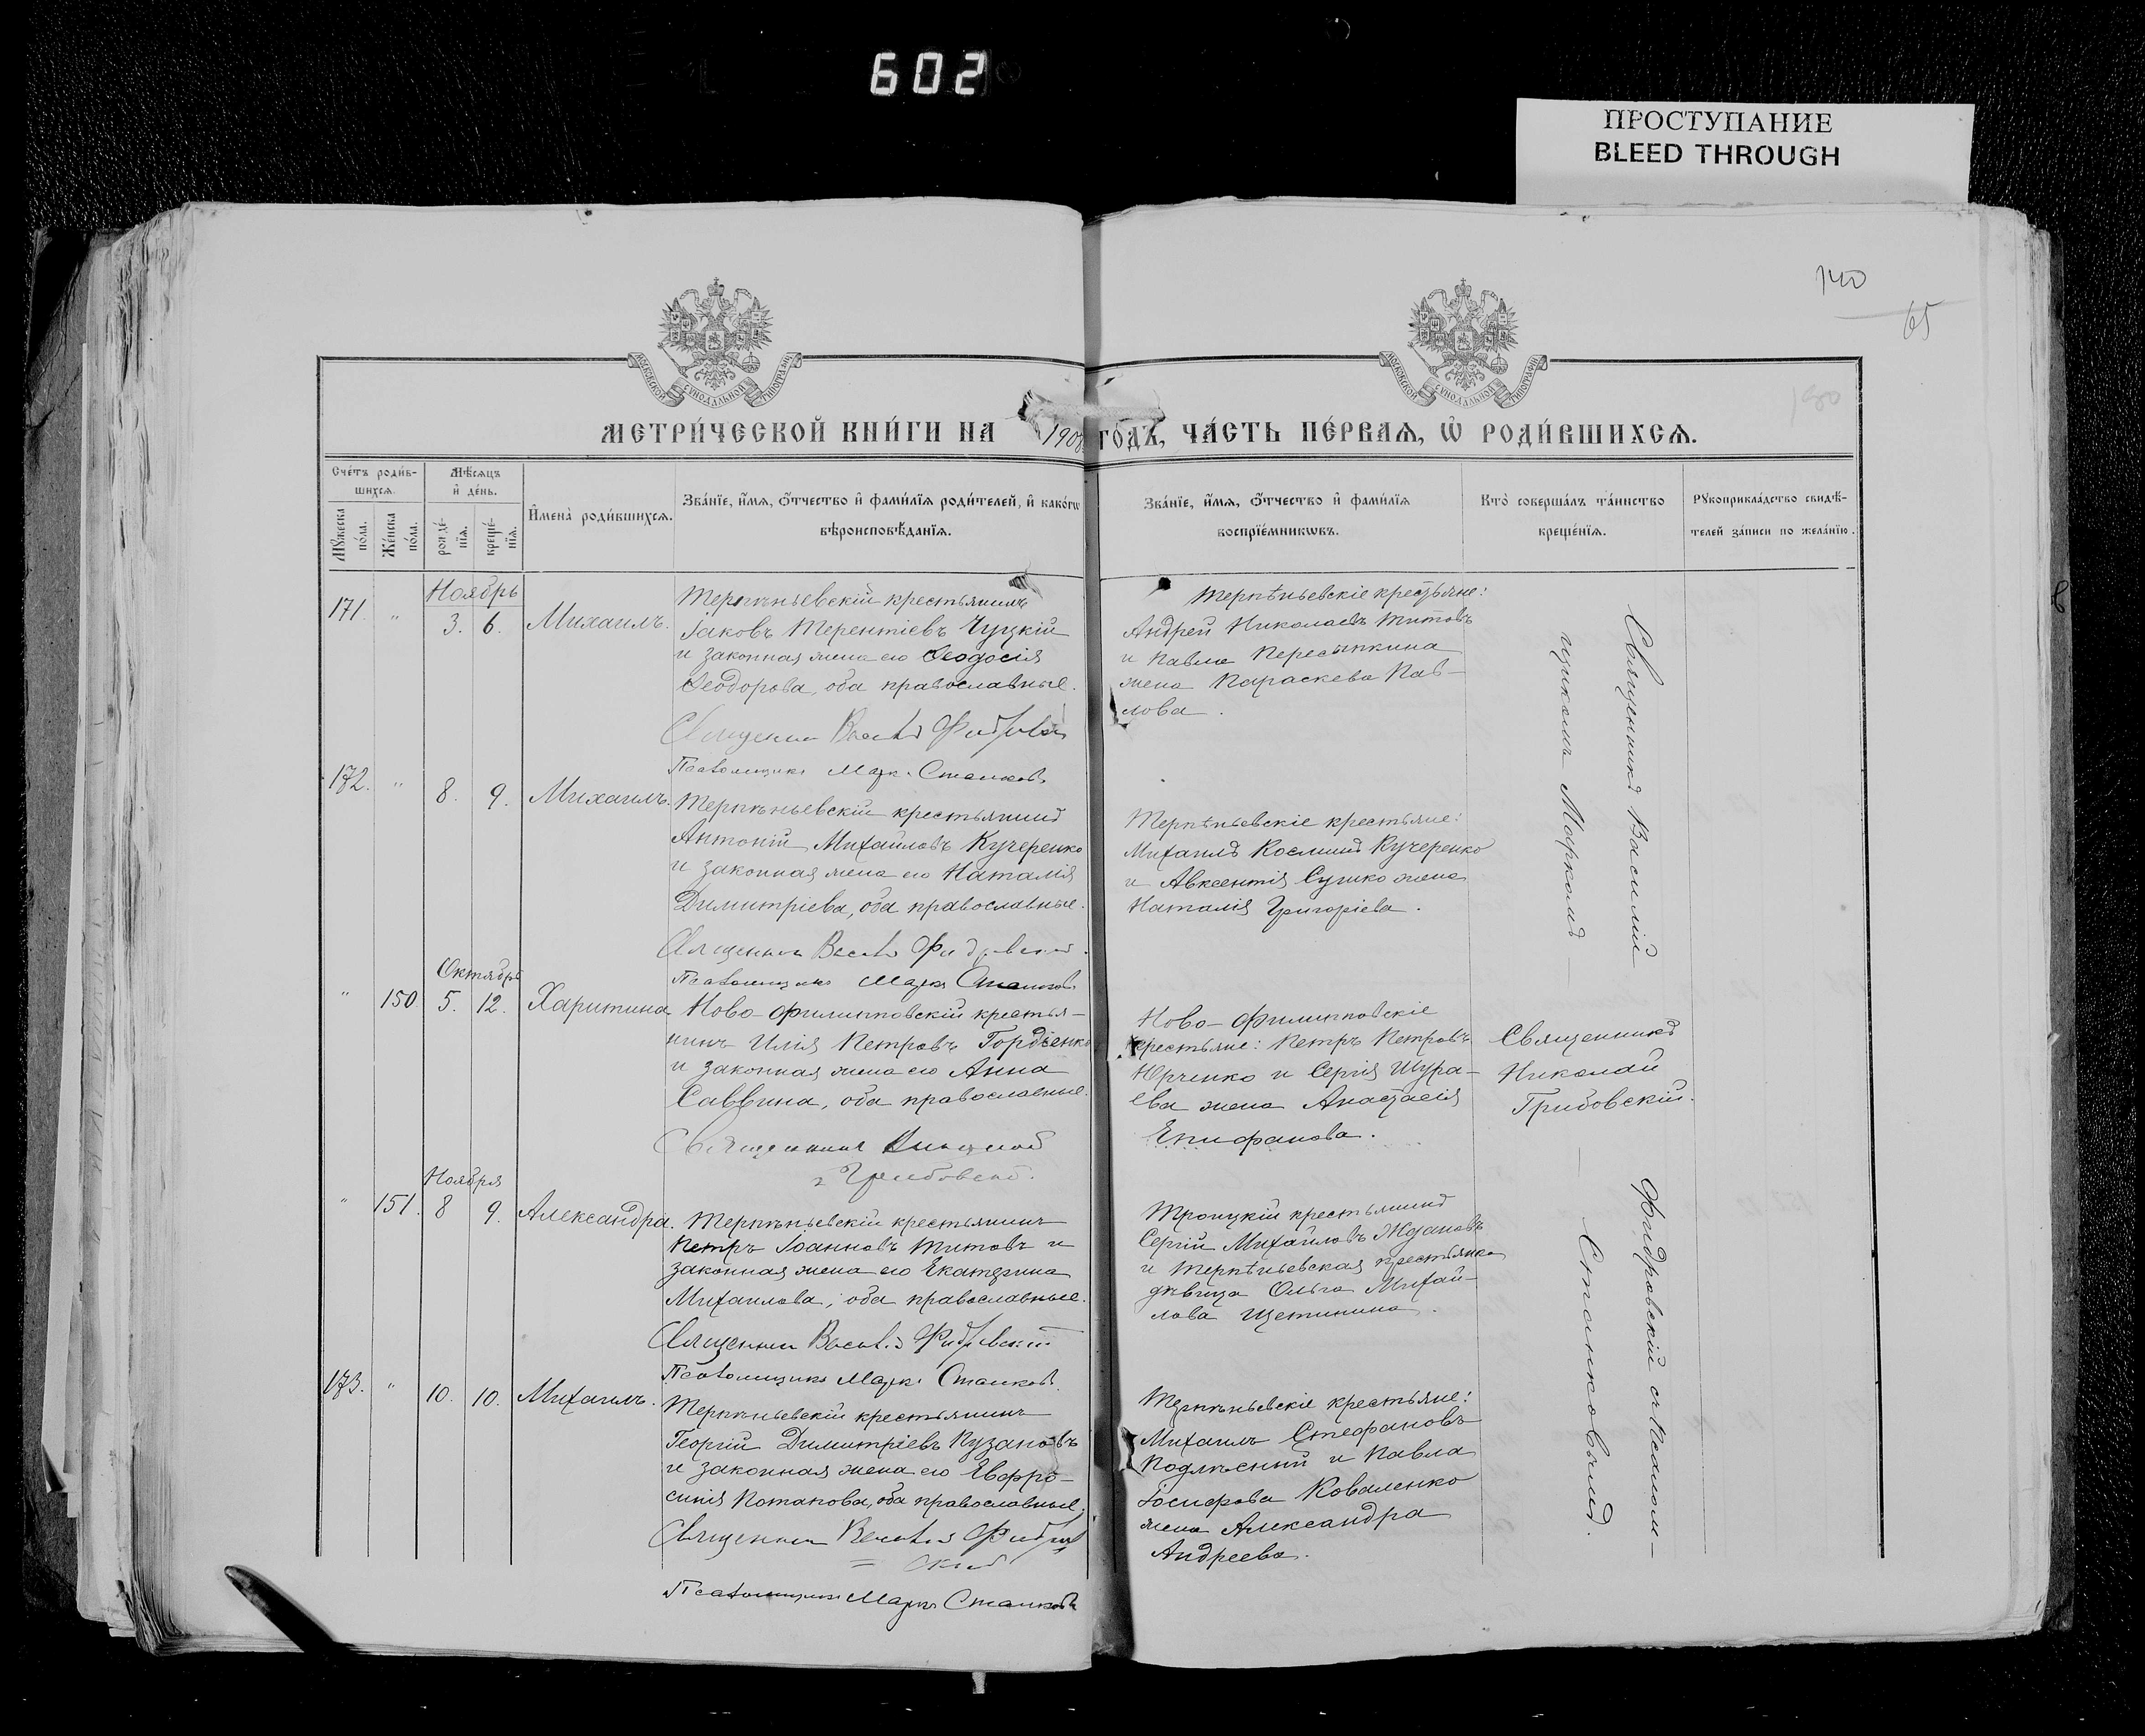 602
ПРОСТУПАНИЕ
BLEED THROUGH
140
65
МОСКОВСКОЙ СѴНОДАЛЬНОЙ ТИПОГРАФІИ
МОСКОВСКОЙ СѴНОДАЛЬНОЙ ТИПОГРАФІИ
МЕТРИ́ЧЕСКОЙ КНИ́ГИ НА 190 ГОДЪ, ЧА́СТЬ ПЕ́РВАѦ, Ѡ РОДИ́ВШИХСѦ.
Сче́тъ роди́в-
шихсѧ.
Мѣ́сѧцъ
и҆ де́нь.
Мꙋ́жеска
по́ла.
Же́нска
по́ла.
рожде́-
нїѧ.
креще́-
нїѧ.
И҆мена̀ роди́вшихсѧ.
Зва́нїе, и҆́мѧ, ѻ҆́тчество и҆ фами́лїѧ роди́телей, и҆ како́гѡ
вѣроисповѣ́данїѧ.
Зва́нїе, и҆́мѧ, ѻ҆́тчество и҆ фами́лїѧ
воспрїе́мникѡвъ.
Кто̀ соверша́лъ та́инство
креще́нїѧ.
Рꙋкоприкла́дство свидѣ́-
телей за́писи по жела́нїю.
Ноябрь
171. " 3. 6. Михаилъ.
Терпѣньевскій крестьянинъ
Іаковъ Терентіевъ Чуцкій
и законная жена его Ѳеодосія
Ѳеодорова, оба православные.
Священникъ Василій
Псаломщикъ Маркъ Станковъ
Терпѣньевскіе крестьяне:
Андрей Николаевъ Титовъ
и Павла Пересыпкина
жена Параскева Пав-
лова.
172. " 8. 9. Михаилъ.
Терпѣньевскій крестьянинъ
Антоній Михайловъ Кучеренко
и законная жена его Наталія
Димитріева, оба православные.
Священникъ Василій Фидровскій
Псаломщикъ Маркъ Станковъ
Терпѣньевскіе крестьяне:
Михаилъ Косминъ Кучеренко
и Авксентія Сушко жена
Наталія Григоріева.
Октябрь
" 150. 5. 12. Харитина
Ново-Филипповскій крестья-
нинъ Илія Петровъ Гордіенко
и законная жена его Анна
Саввина, оба православные.
Священникъ Николай
Грибовскій.
Ново-Филипповскіе
крестьяне: Петръ Петровъ
Юрченко и Сергія Шура-
ева жена Анастасія
Епифанова.
Священникъ
Николай
Грибовскій.
Ноября
" 151. 8 9. Александра.
Терпѣньевскій крестьянинъ
Петръ Іоанновъ Титовъ и
законная жена его Екатерина
Михаилова, оба православные.
Священникъ Василій Фидровскій
Псаломщикъ Маркъ Станковъ
Троицкій крестьянинъ
Сергій Михайловъ Ждановъ
и Терпѣньевская крестьянка
дѣвица Ольга Михай-
лова Щетинина.
173. " 10. 10. Михаилъ.
Терпѣньевскій крестьянинъ
Георгій Димитріевъ Пузановъ
и законная жена его Евфро-
синія Потапова, оба православные.
Священникъ Василій Фидров
= скій
Псаломщикъ Маркъ Станковъ
Терпѣньевскіе крестьяне:
Михаилъ Стефановъ
Подлѣсный и Павла
Іосифова Коваленко
жена Александра
Андреева.
Священникъ Василій
Фидровскій съ псалом-
щикомъ Маркомъ —
— Станковымъ.